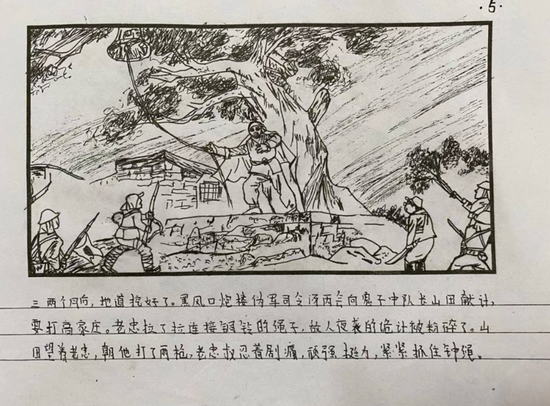 ·5·
三 两个月后,地道挖好了。黑风口炮楼伪军司令汤丙会向鬼子中队长山田献计,
要打高家庄。老忠拉了拉连接铜钟的绳子,敌人夜袭的诡计被粉碎了。山
田望着老忠,朝他打了两枪,老忠叔忍着剧痛,顽强挺力,紧紧抓住钟绳。